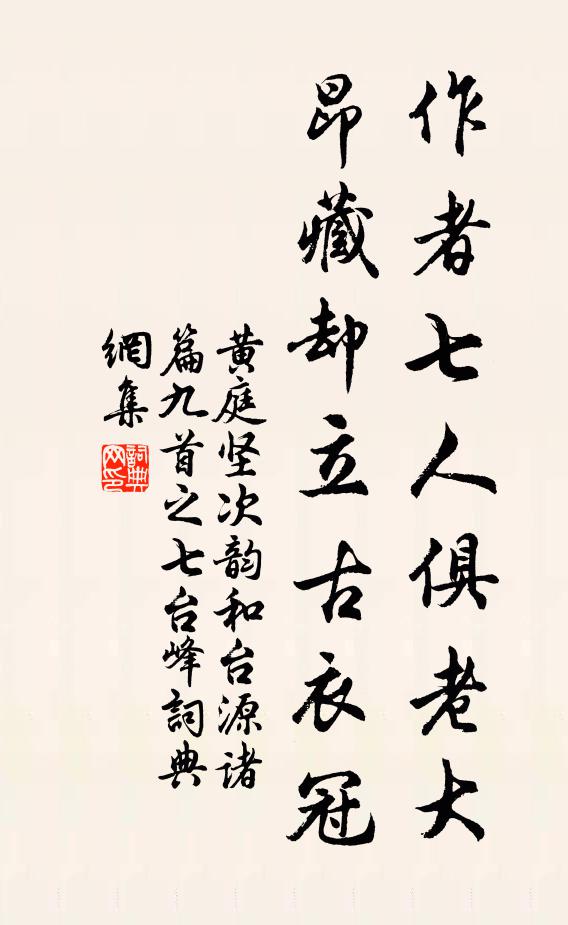 作者七人俱老大
昂藏却立古衣冠
黄庭坚次韵和台源诸
篇九首之七台峰詞典
網集
詞典
网印